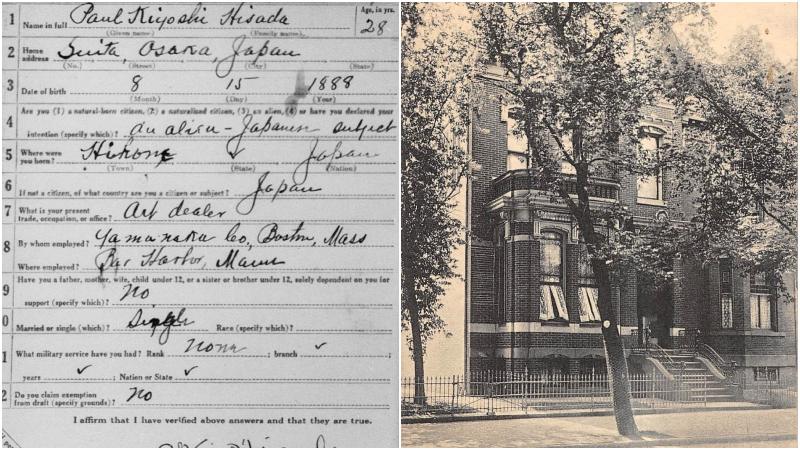 1 Name in full Paul Kiyoshi Hisada Age, in yrs.
(Given name) (Family name) 28
2 Home address Suita, Osaka, Japan
(No.) (Street) (City) (State)
3 Date of birth 8 15 1888
(Month) (Day) (Year)
Are you (1) a natural-born citizen, (2) a naturalized citizen, (3) an alien, (4) or have you declared your
4 intention (specify which)? an alien - Japanese subject
5 Where were you born? Hikone ✓ Japan
(Town) (State) (Nation)
6 If not a citizen, of what country are you a citizen or subject? Japan
7 What is your present trade, occupation, or office? Art dealer
8 By whom employed? Yamanaka Co., Boston, Mass
Where employed? Bar Harbor, Maine
Have you a father, mother, wife, child under 12, or a sister or brother under 12, solely dependent on you for
9 support (specify which)? No
0 Married or single (which)? Single Race (specify which)?
1 What military service have you had? Rank None ; branch ✓ ;
years ✓ ; Nation or State ✓
2 Do you claim exemption from draft (specify grounds)? No
I affirm that I have verified above answers and that they are true.